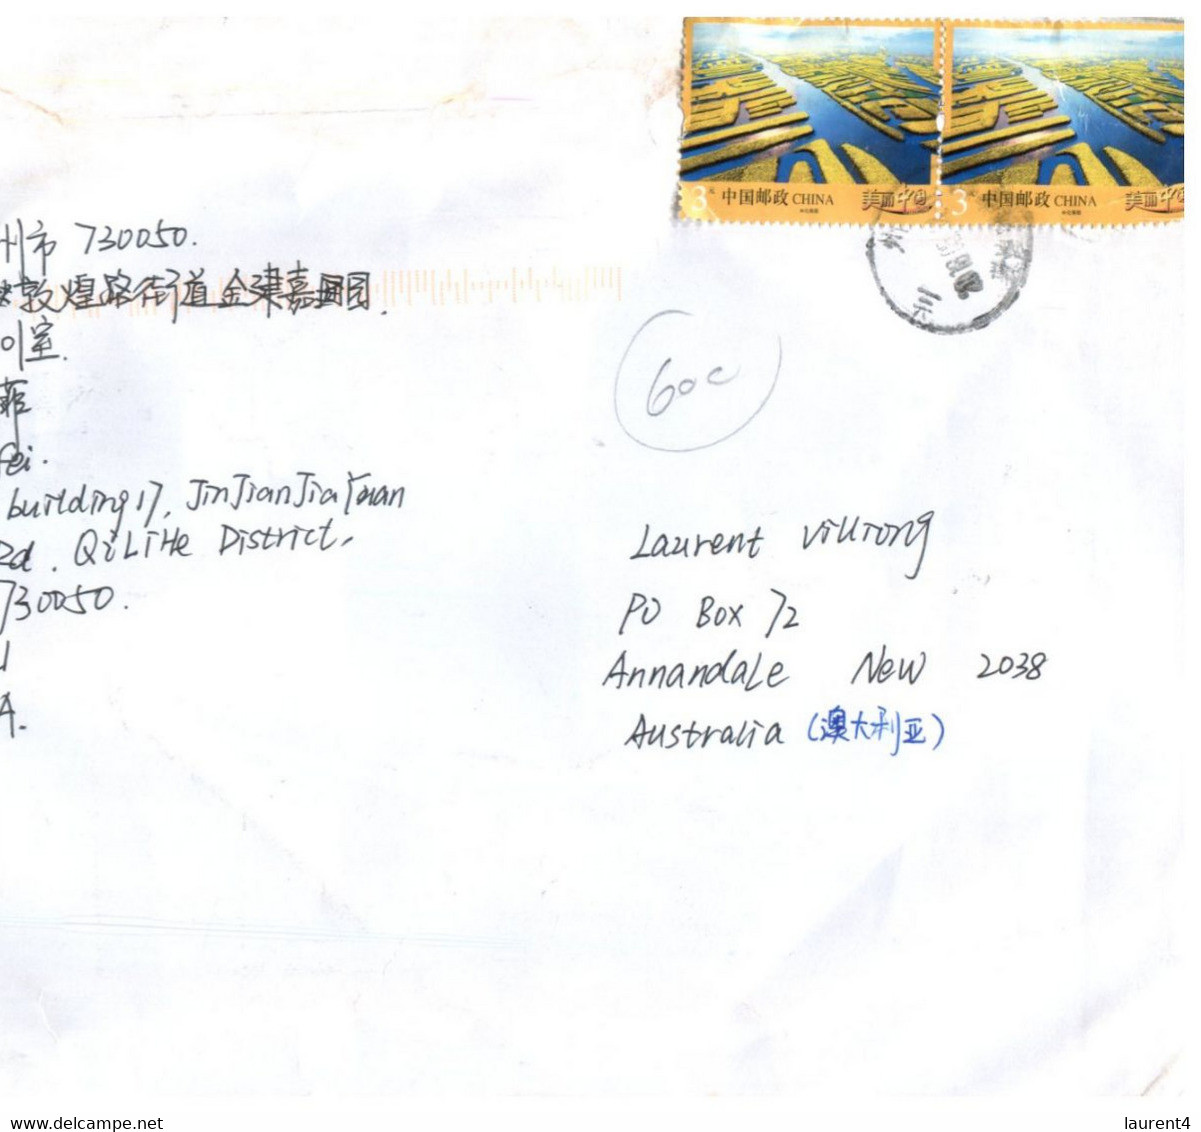 3元 中国邮政 CHINA 美丽中国
3元 中国邮政 CHINA 美丽中国
州市 730050.
敦煌路街道金建嘉园.
01室.
菲
fei.
building 17, JinJianJiaYuan
Rd. QiLiHe District,
730050.
60c
Laurent Villiong
PO Box 72
Annandale New 2038
Australia (澳大利亚)
laurent4